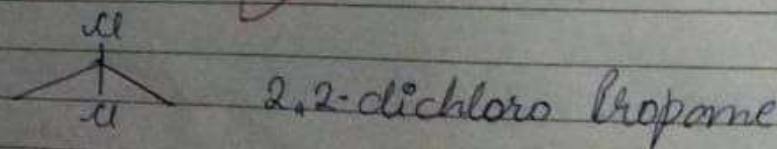 Cl
Cl
2,2-dichloro Propane